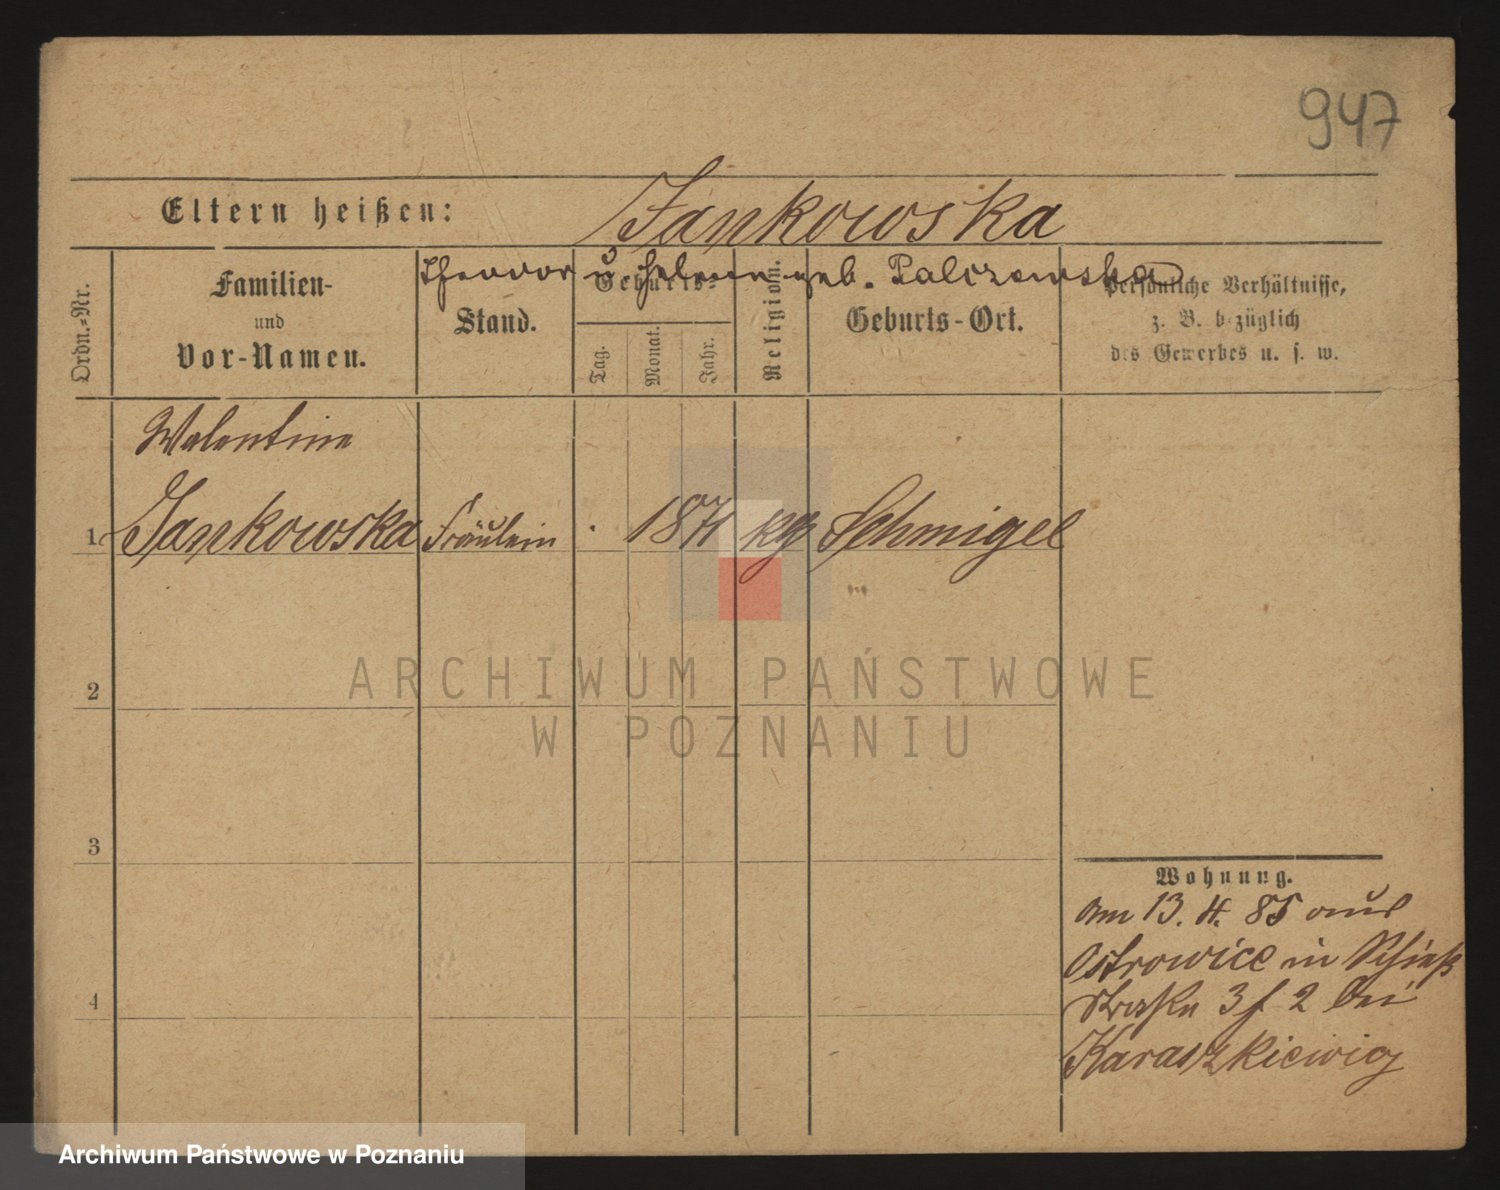 947
Eltern heißen: Jankowska
Theodor u Helene geb. Palczewska
Ordn.-Nr.
Familien-
und
Vor-Namen.
Stand.
Geburts-
Tag.
Monat.
Jahr.
Religion.
Geburts-Ort.
Persönliche Verhältnisse,
z. B. bezüglich
des Gewerbes u. s. w.
Valentine
1. Jankowska Fräulein 1871 kg Schmigel
2
3
4
Wohnung.
Am 13. 4. 85 aus
Ostrowice in Schieß
Straße 3 f 2 bei
Karaszkiewicz
ARCHIWUM PAŃSTWOWE
W POZNANIU
Archiwum Państwowe w Poznaniu